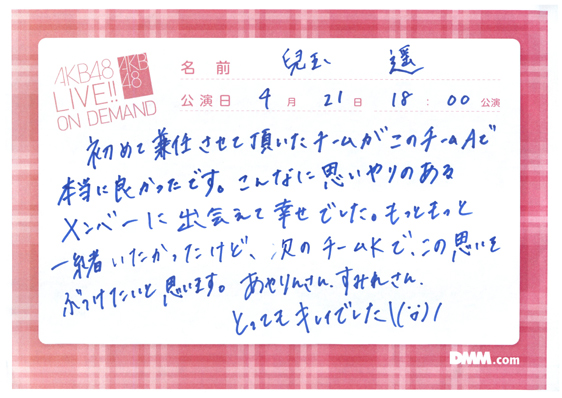 AKB48
LIVE!!
ON DEMAND
AKB
48
名前 兒玉 遥
公演日 4月21日 18:00公演
初めて兼任させて頂いたチームがこのチームAで
本当に良かったです。こんなに思いやりのある
メンバーに出会えて幸せでした。もっともっと
一緒いたかったけど、次のチームKで、この思いを
ぶつけたいと思います。あやりんさん、すみれさん、
とってもキレイでした\(¨)/
DMM.com